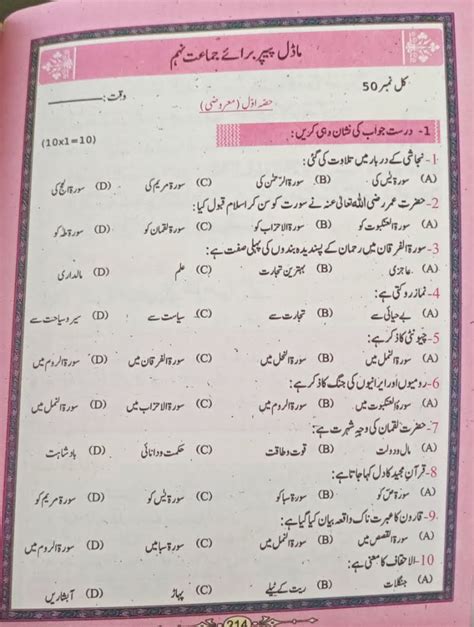 ماڈل پیپر برائے جماعت نہم
کل نمبر 50
وقت:
حصہ اول (معروضی)
1- درست جواب کی نشان دہی کریں: (10x1=10)
1- نجاشی کے دربار میں تلاوت کی گئی:
(A) سورۃ یٰس کی (B) سورۃ الرحمٰن کی (C) سورۃ مریم کی (D) سورۃ الحج کی
2- حضرت عمر رضی اللہ تعالیٰ عنہ نے سورت کو سن کر اسلام قبول کیا:
(A) سورۃ العنکبوت کو (B) سورۃ الاحزاب کو (C) سورۃ لقمان کو (D) سورۃ طٰہٰ کو
3- سورۃ الفرقان میں رحمان کے پسندیدہ بندوں کی پہلی صفت ہے:
(A) عاجزی (B) بہترین تجارت (C) علم (D) مالداری
4- نماز روکتی ہے:
(A) بے حیائی سے (B) تجارت سے (C) سیاست سے (D) سیر و سیاحت سے
5- چیونٹی کا ذکر ہے:
(A) سورۃ النمل میں (B) سورۃ النحل میں (C) سورۃ الفرقان میں (D) سورۃ الروم میں
6- رومیوں اور ایرانیوں کی جنگ کا ذکر ہے:
(A) سورۃ العنکبوت میں (B) سورۃ الروم میں (C) سورۃ الاحزاب میں (D) سورۃ النمل میں
7- حضرت لقمان کی وجہِ شہرت ہے:
(A) مال و دولت (B) قوت و طاقت (C) حکمت و دانائی (D) بادشاہت
8- قرآنِ مجید کا دل کہا جاتا ہے:
(A) سورۃ صٓ کو (B) سورۃ سبا کو (C) سورۃ یٰس کو (D) سورۃ مریم کو
9- قارون کا عبرت ناک واقعہ بیان کیا گیا ہے:
(A) سورۃ القصص میں (B) سورۃ النحل میں (C) سورۃ سبا میں (D) سورۃ الروم میں
10- الاحقاف کا معنی ہے:
(A) جنگلات (B) ریت کے ٹیلے (C) پہاڑ (D) آبشاریں
214